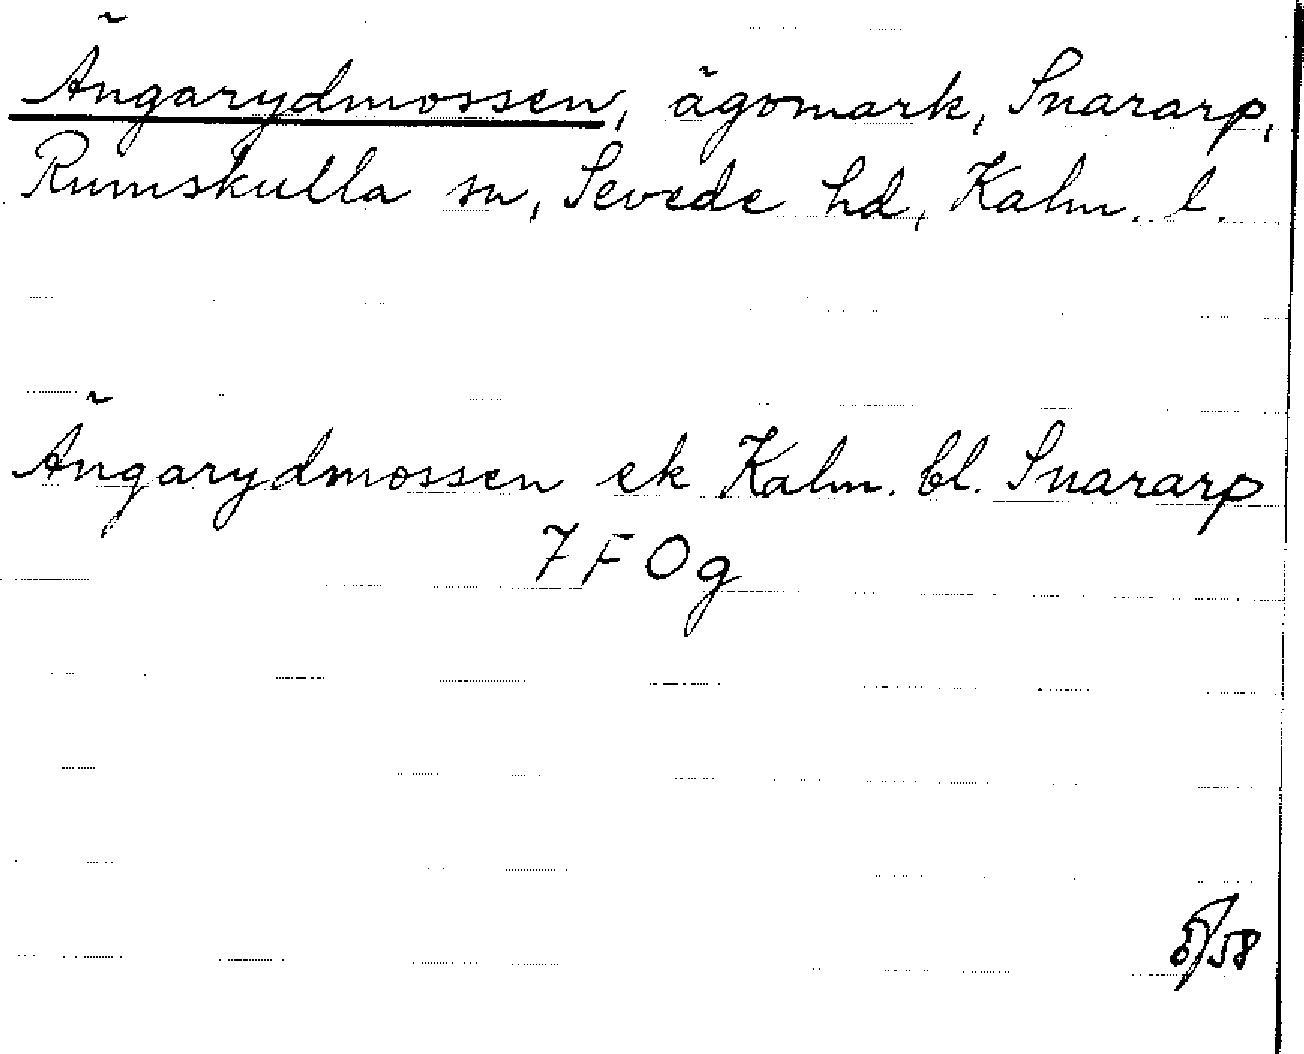 Ängarydmossen, ägomark, Snararp,
Rumskulla sn, Sevede hd, Kalm. l.
Ängarydmossen ek Kalm. bl. Snararp
7 F 0 g
/58